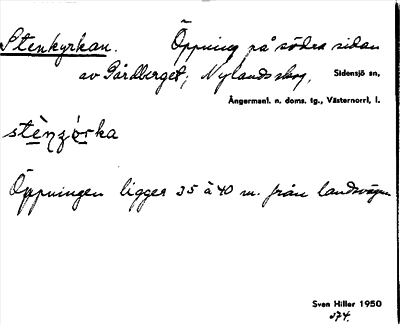 Stenkyrkan. Öppning på södra sidan
av Gårdberget, Nylandsskog, Sidensjö sn,
Ångermanl. n. doms. tg., Västernorrl, l.
Öppningen ligger 35 à 40 m. från landsvägen
Sven Hiller 1950
574.